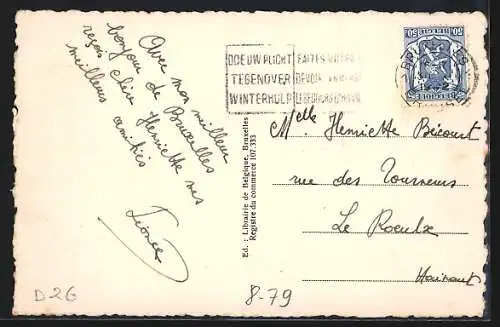 Avec mon meilleur
bonjour de Bruxelles
reçois chère Henriette mes
meilleures amitiés
Léonce
DOE UW PLICHT
TEGENOVER
WINTERHULP
FAITES VOTRE
DEVOIR ENVERS
LE SECOURS D'HIVER
BELGIQUE BELGIE
50
Ed. : Librairie de Belgique, Bruxelles
Registre du commerce 107.333
Melle Henriette Bécourt
rue des Tourneurs
Le Roeulx
Hainaut
D26
8-79